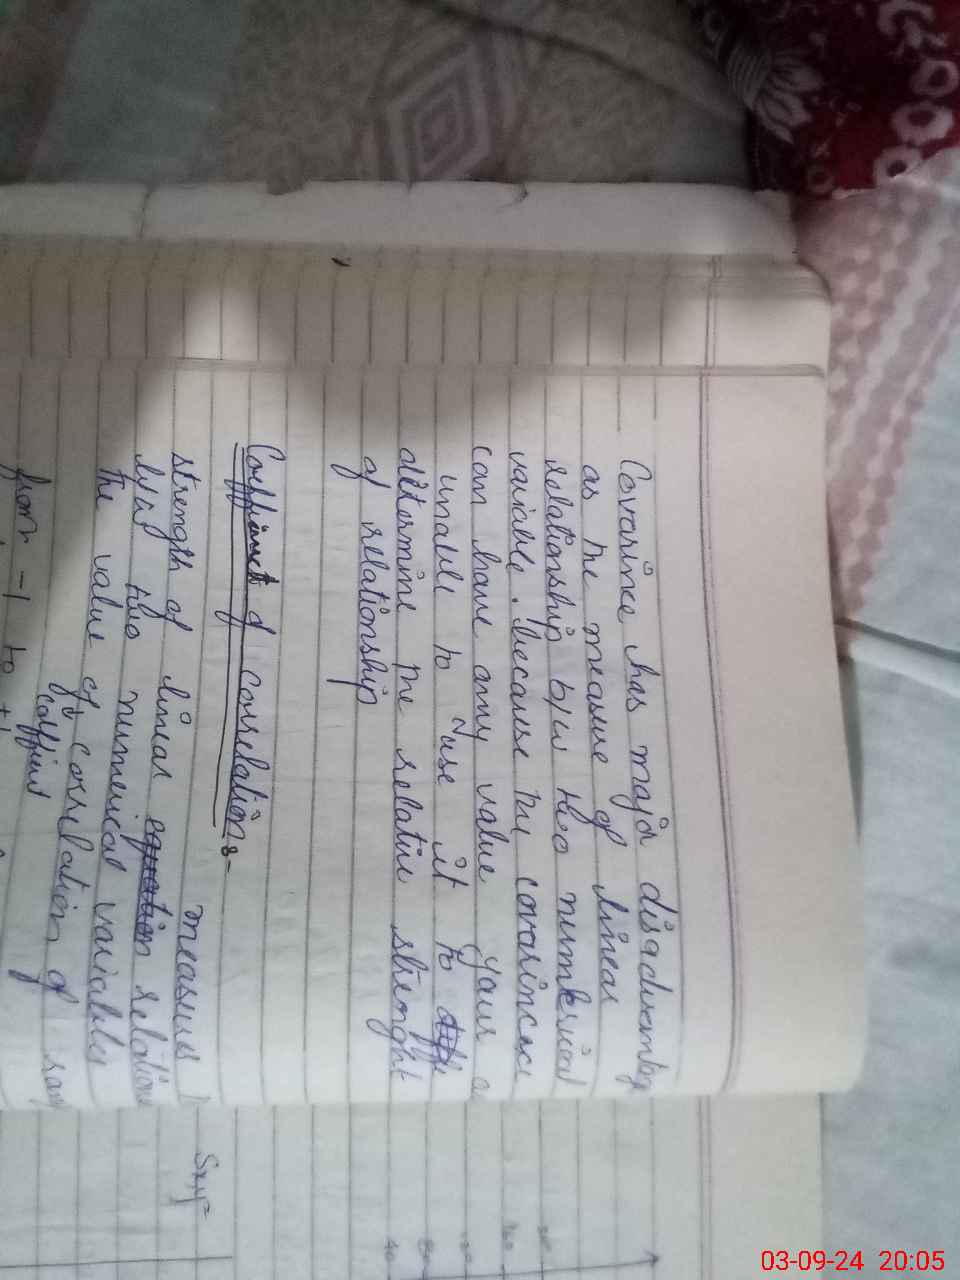 Covarince has major disadvantage
as the measure of linear
relationship b/w two numerical
variable. because the covarince
can have any value your a
unable to use it to
determine the relative strenght
of relationship
Coefficient of correlation :-
measures
strength of linear relation
b/w two numerical variables
The value of correlation of
cofficient
from -1 to +1
Sxy=
03-09-24 20:05